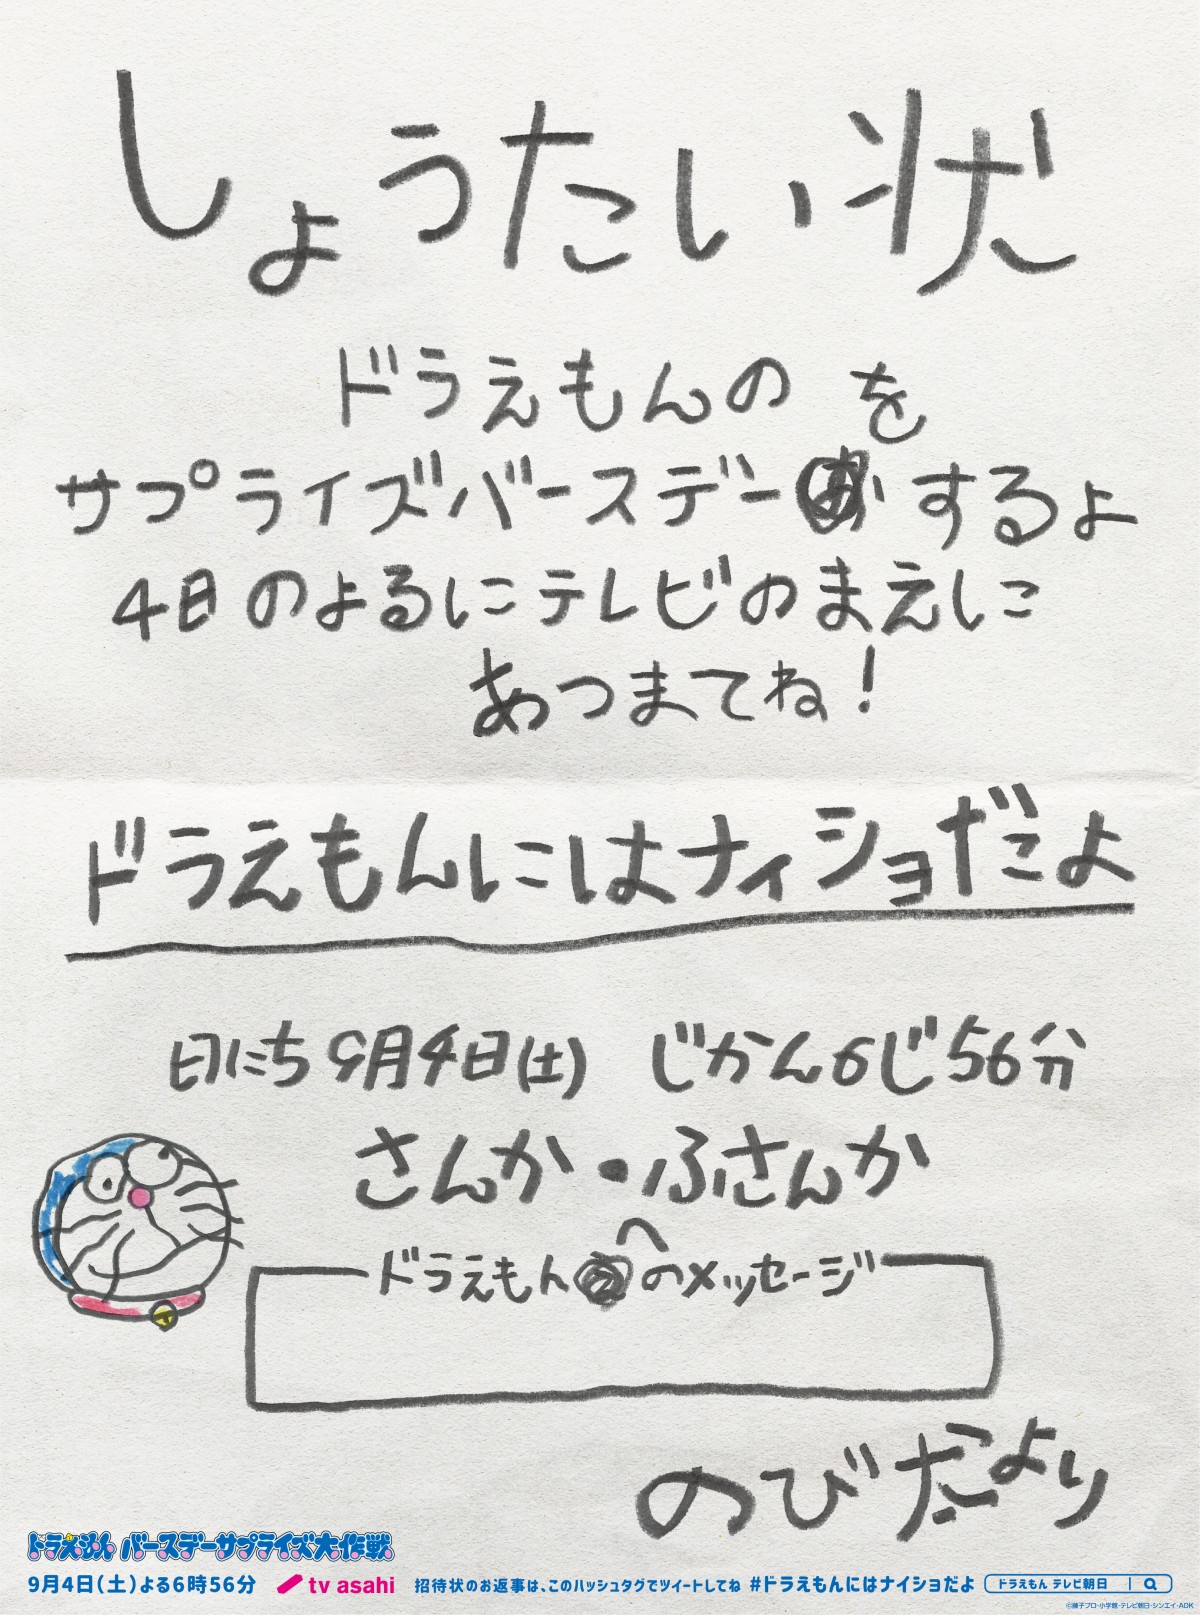 しょうたい状
ドラえもんの を
サプライズバースデー するよ
4日のよるにテレビのまえに
あつまてね!
ドラえもんにはナイショだよ
日にち 9月4日(土) じかん6じ56分
さんか・ふさんか
ドラえもんへのメッセージ
のびたより
ドラえもん バースデーサプライズ大作戦
9月4日(土)よる6時56分 tv asahi 招待状のお返事は、このハッシュタグでツイートしてね #ドラえもんにはナイショだよ ドラえもん テレビ朝日
©藤子プロ・小学館・テレビ朝日・シンエイ・ADK